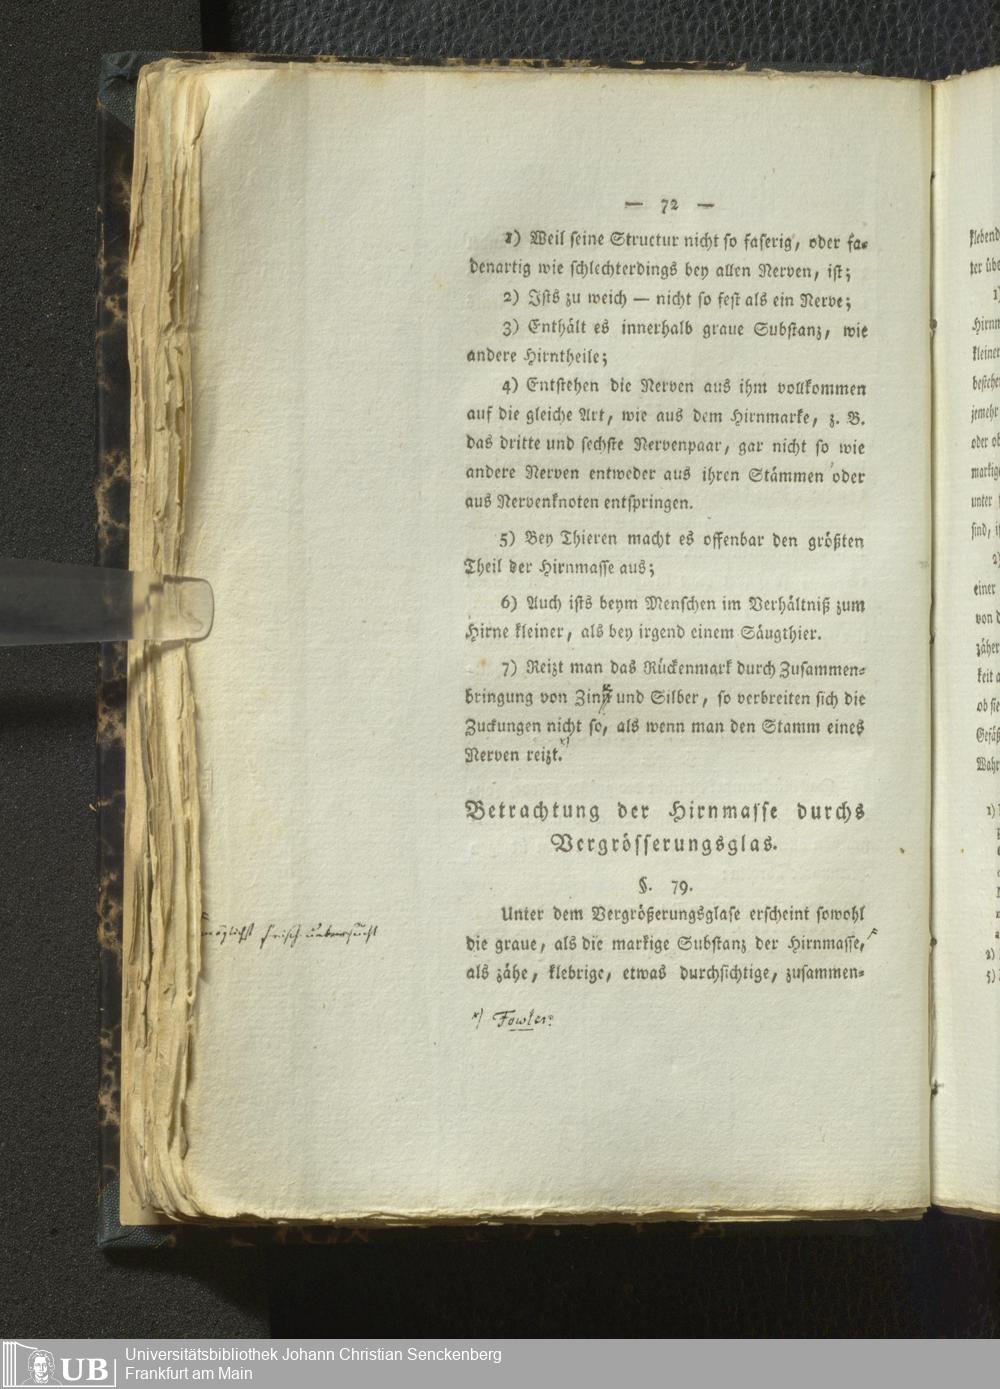 — 72 —
1) Weil seine Structur nicht so faserig, oder fa-
denartig wie schlechterdings bey allen Nerven, ist;
2) Ists zu weich — nicht so fest als ein Nerve;
3) Enthält es innerhalb graue Substanz, wie
andere Hirntheile;
4) Entstehen die Nerven aus ihm vollkommen
auf die gleiche Art, wie aus dem Hirnmarke, z. B.
das dritte und sechste Nervenpaar, gar nicht so wie
andere Nerven entweder aus ihren Stämmen oder
aus Nervenknoten entspringen.
5) Bey Thieren macht es offenbar den größten
Theil der Hirnmasse aus;
6) Auch ists beym Menschen im Verhältniß zum
Hirne kleiner, als bey irgend einem Säugthier.
7) Reizt man das Rückenmark durch Zusammen-
bringung von Zink und Silber, so verbreiten sich die
Zuckungen nicht so, als wenn man den Stamm eines
Nerven reizt. x)
Betrachtung der Hirnmasse durchs
Vergrösserungsglas.
§. 79.
Unter dem Vergrößerungsglase erscheint sowohl
die graue, als die markige Substanz der Hirnmasse,
als zähe, klebrige, etwas durchsichtige, zusammen-
möglichst frisch untersucht
x) Fowler.
klebend
ter übe
1)
Hirnm
kleiner
bestehe
jemehr
oder ob
markig
unter
sind, i
2)
einer
von d
zäher
keit a
ob sie
Gefäß
Wahr
1)
2)
3)
UB
Universitätsbibliothek Johann Christian Senckenberg
Frankfurt am Main